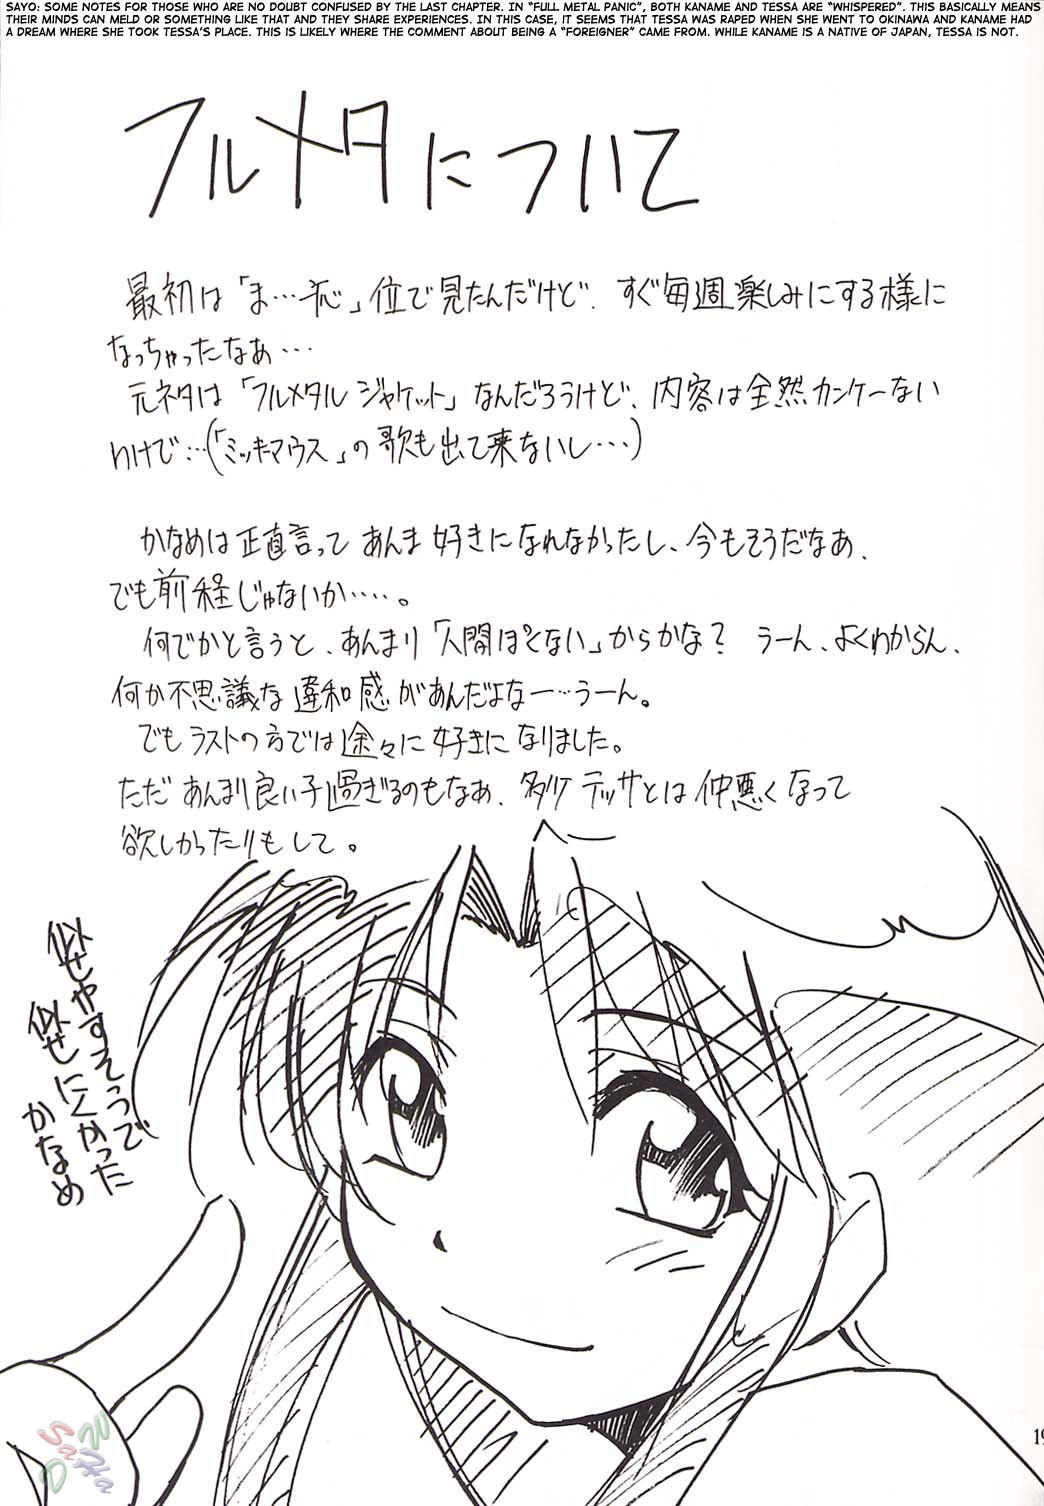 SAYO: SOME NOTES FOR THOSE WHO ARE NO DOUBT CONFUSED BY THE LAST CHAPTER. IN "FULL METAL PANIC", BOTH KANAME AND TESSA ARE "WHISPERED". THIS BASICALLY MEANS
THEIR MINDS CAN MELD OR SOMETHING LIKE THAT AND THEY SHARE EXPERIENCES. IN THIS CASE, IT SEEMS THAT TESSA WAS RAPED WHEN SHE WENT TO OKINAWA AND KANAME HAD
A DREAM WHERE SHE TOOK TESSA'S PLACE. THIS IS LIKELY WHERE THE COMMENT ABOUT BEING A "FOREIGNER" CAME FROM. WHILE KANAME IS A NATIVE OF JAPAN, TESSA IS NOT.
フルメタについて
最初は「ま…一応」位で見たんだけど、すぐ毎週楽しみにする様に
なっちゃったなぁ…
元ネタは「フルメタルジャケット」なんだろうけど、内容は全然カンケーない
わけで…(「ミッキーマウス」の歌も出て来ないし…)
かなめは正直言ってあんま好きになれなかったし、今もそうだなあ、
でも前程じゃないか……。
何でかと言うと、あんまり「人間ぽくない」からかな？ うーん、よくわからん、
何か不思議な違和感があんだよなー…うーん。
でもラストの方では途々に好きになりました。
ただあんまり良い子過ぎるのもなぁ、多少テッサとは仲悪くなって
欲しかったりもして。
似せやすそうで
似せにくかった
かなめ
SaHa
19